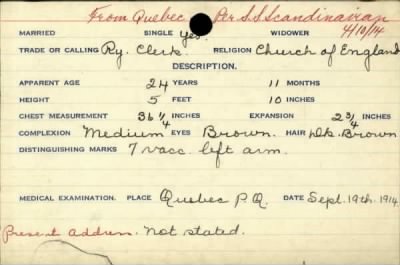 From Quebec Per S.S. Scandinavian
4/10/14
MARRIED SINGLE yes. WIDOWER
TRADE OR CALLING Ry. Clerk. RELIGION Church of England
DESCRIPTION.
APPARENT AGE 24 YEARS 11 MONTHS
HEIGHT 5 FEET 10 INCHES
CHEST MEASUREMENT 36 1/4 INCHES EXPANSION 2 3/4 INCHES
COMPLEXION Medium EYES Brown. HAIR Dk. Brown
DISTINGUISHING MARKS 7 vacc. left arm.
MEDICAL EXAMINATION. PLACE Quebec P.Q. DATE Sept. 19th. 1914
Present address. Not stated.